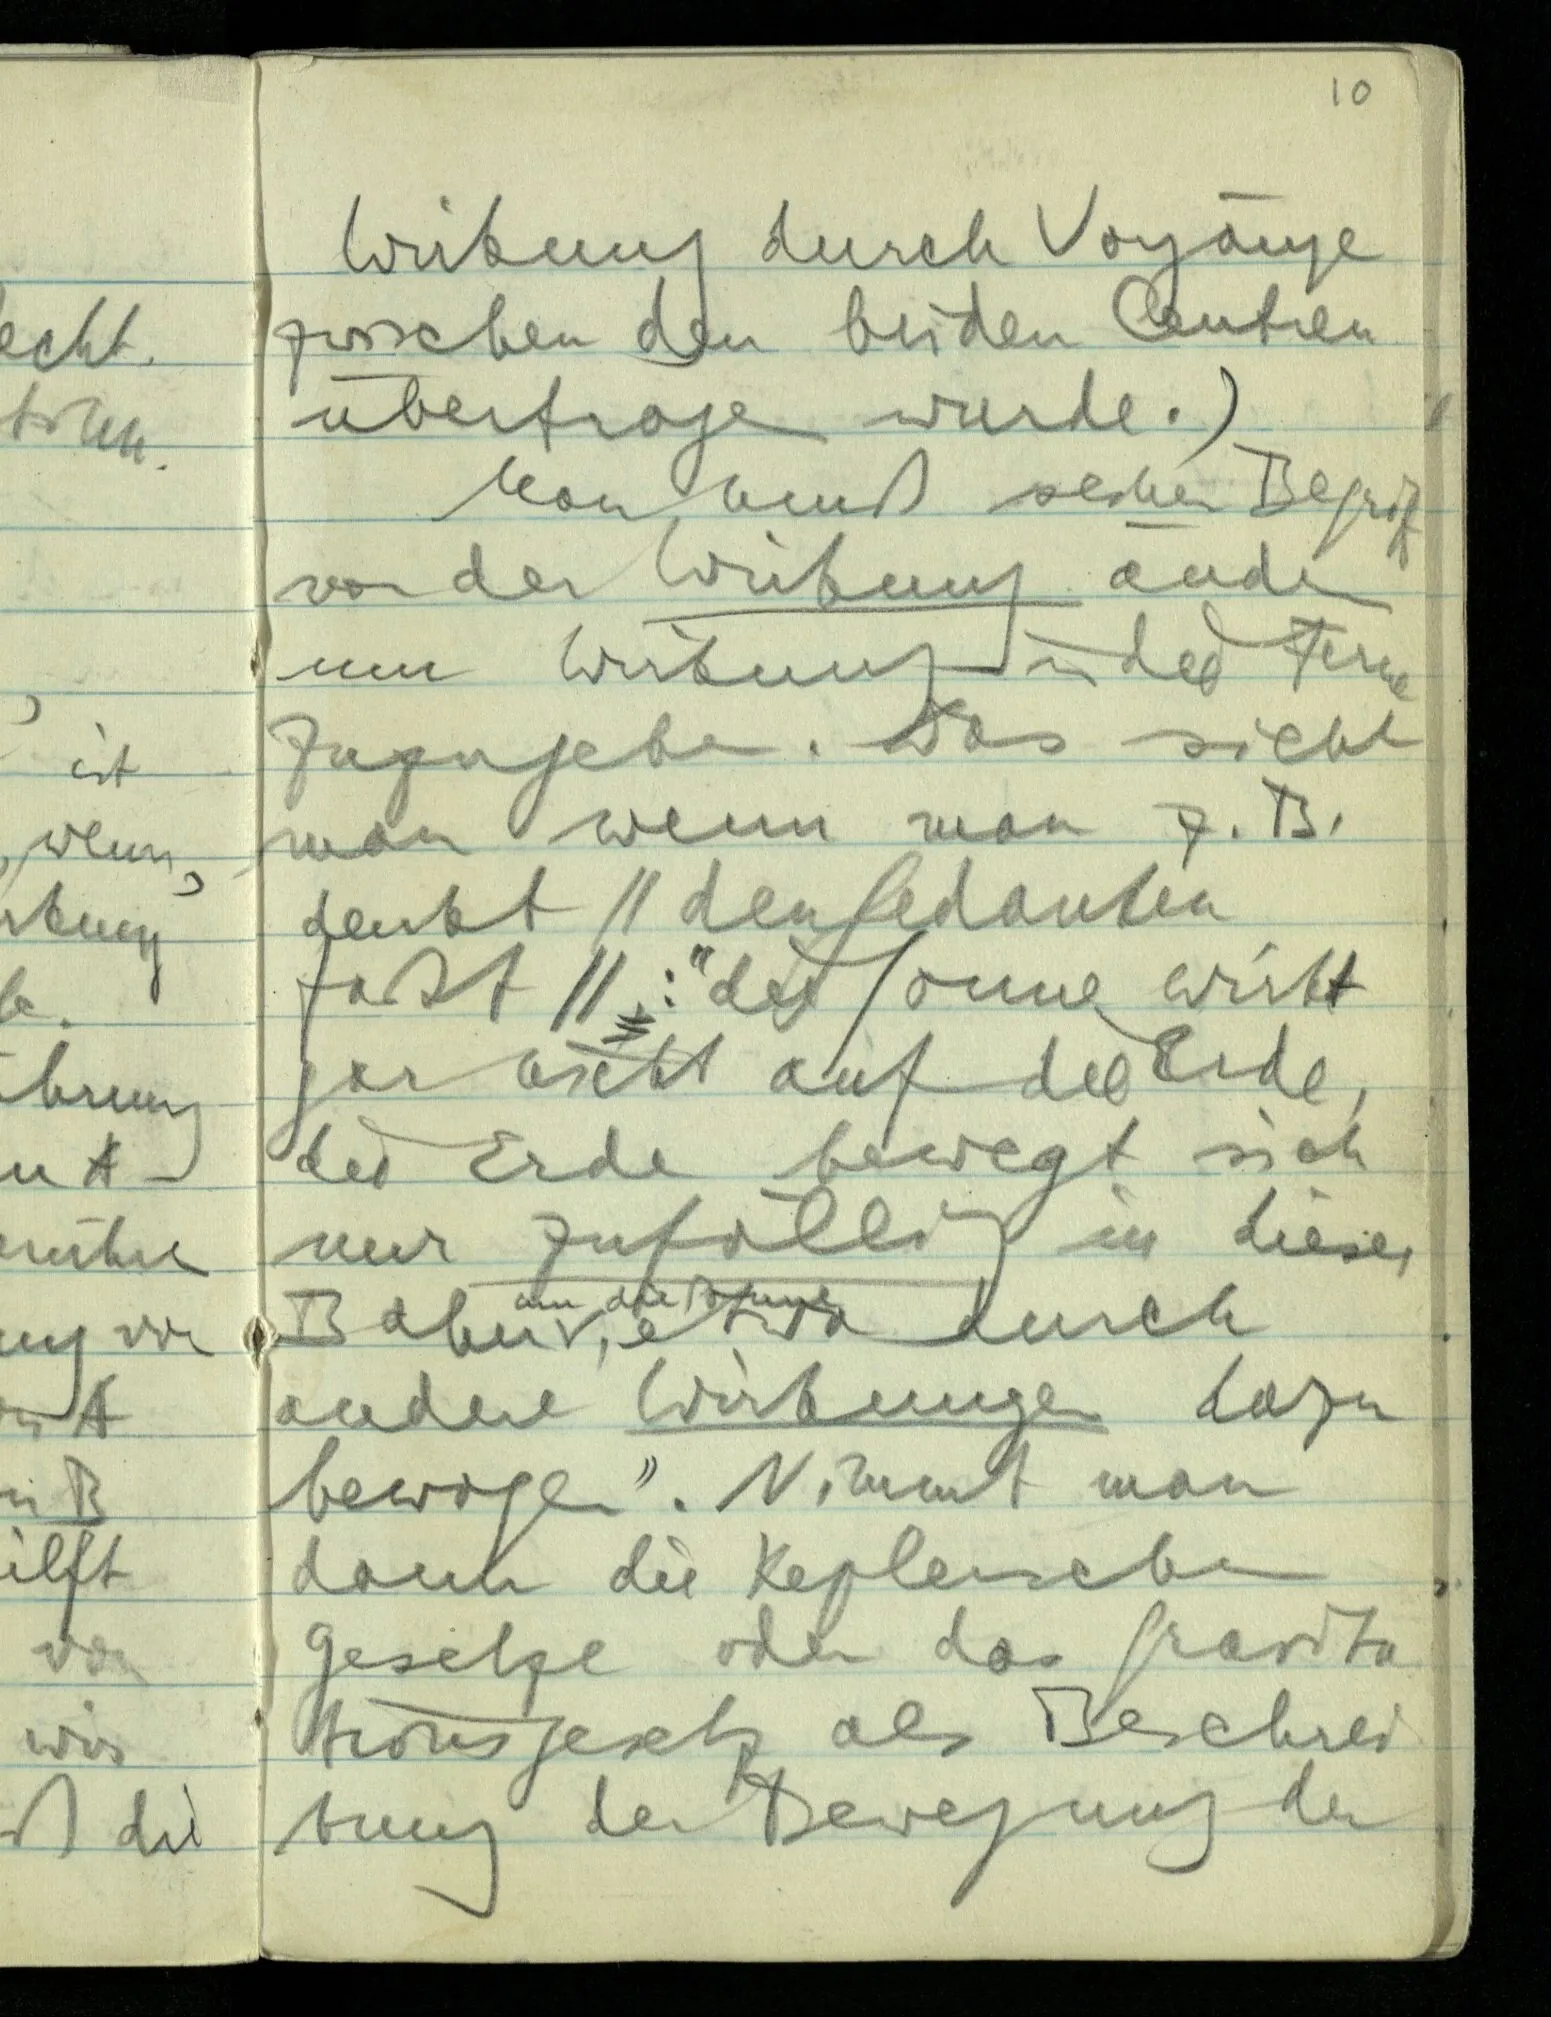 10
Wirkung durch Vorgänge
zwischen den beiden Centren
übertragen wurde.)
Man muß seinen Begriff
von der Wirkung ändern
um Wirkung in die Ferne
zuzugeben. Das sieht
man wenn man z. B.
denkt // den Gedanken
faßt // : "die Sonne wirkt
gar nicht auf die Erde,
die Erde bewegt sich
nur zufällig in dieser
um die Sonne
Bahn, etwa durch
andere Wirkungen dazu
bewogen". Nimmt man
dann die Keplerschen
Gesetze oder das Gravita
tionsgesetz als Beschrei
bung der Bewegung der
echt.
ist
, wenn,
rkung
ührung
n A
erührt
ung von
A
in B
ilft
von
wir
ß die